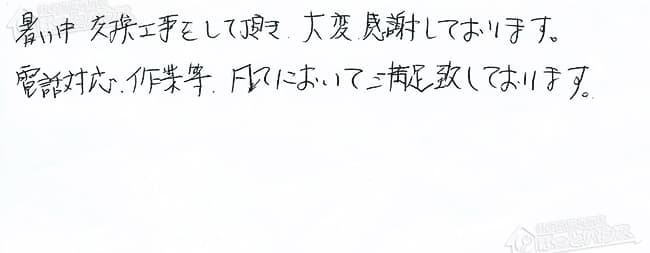 暑い中 交換工事をして頂き、大変感謝しております。
電話対応、作業等、全てにおいてご満足致しております。
ほっとハウス